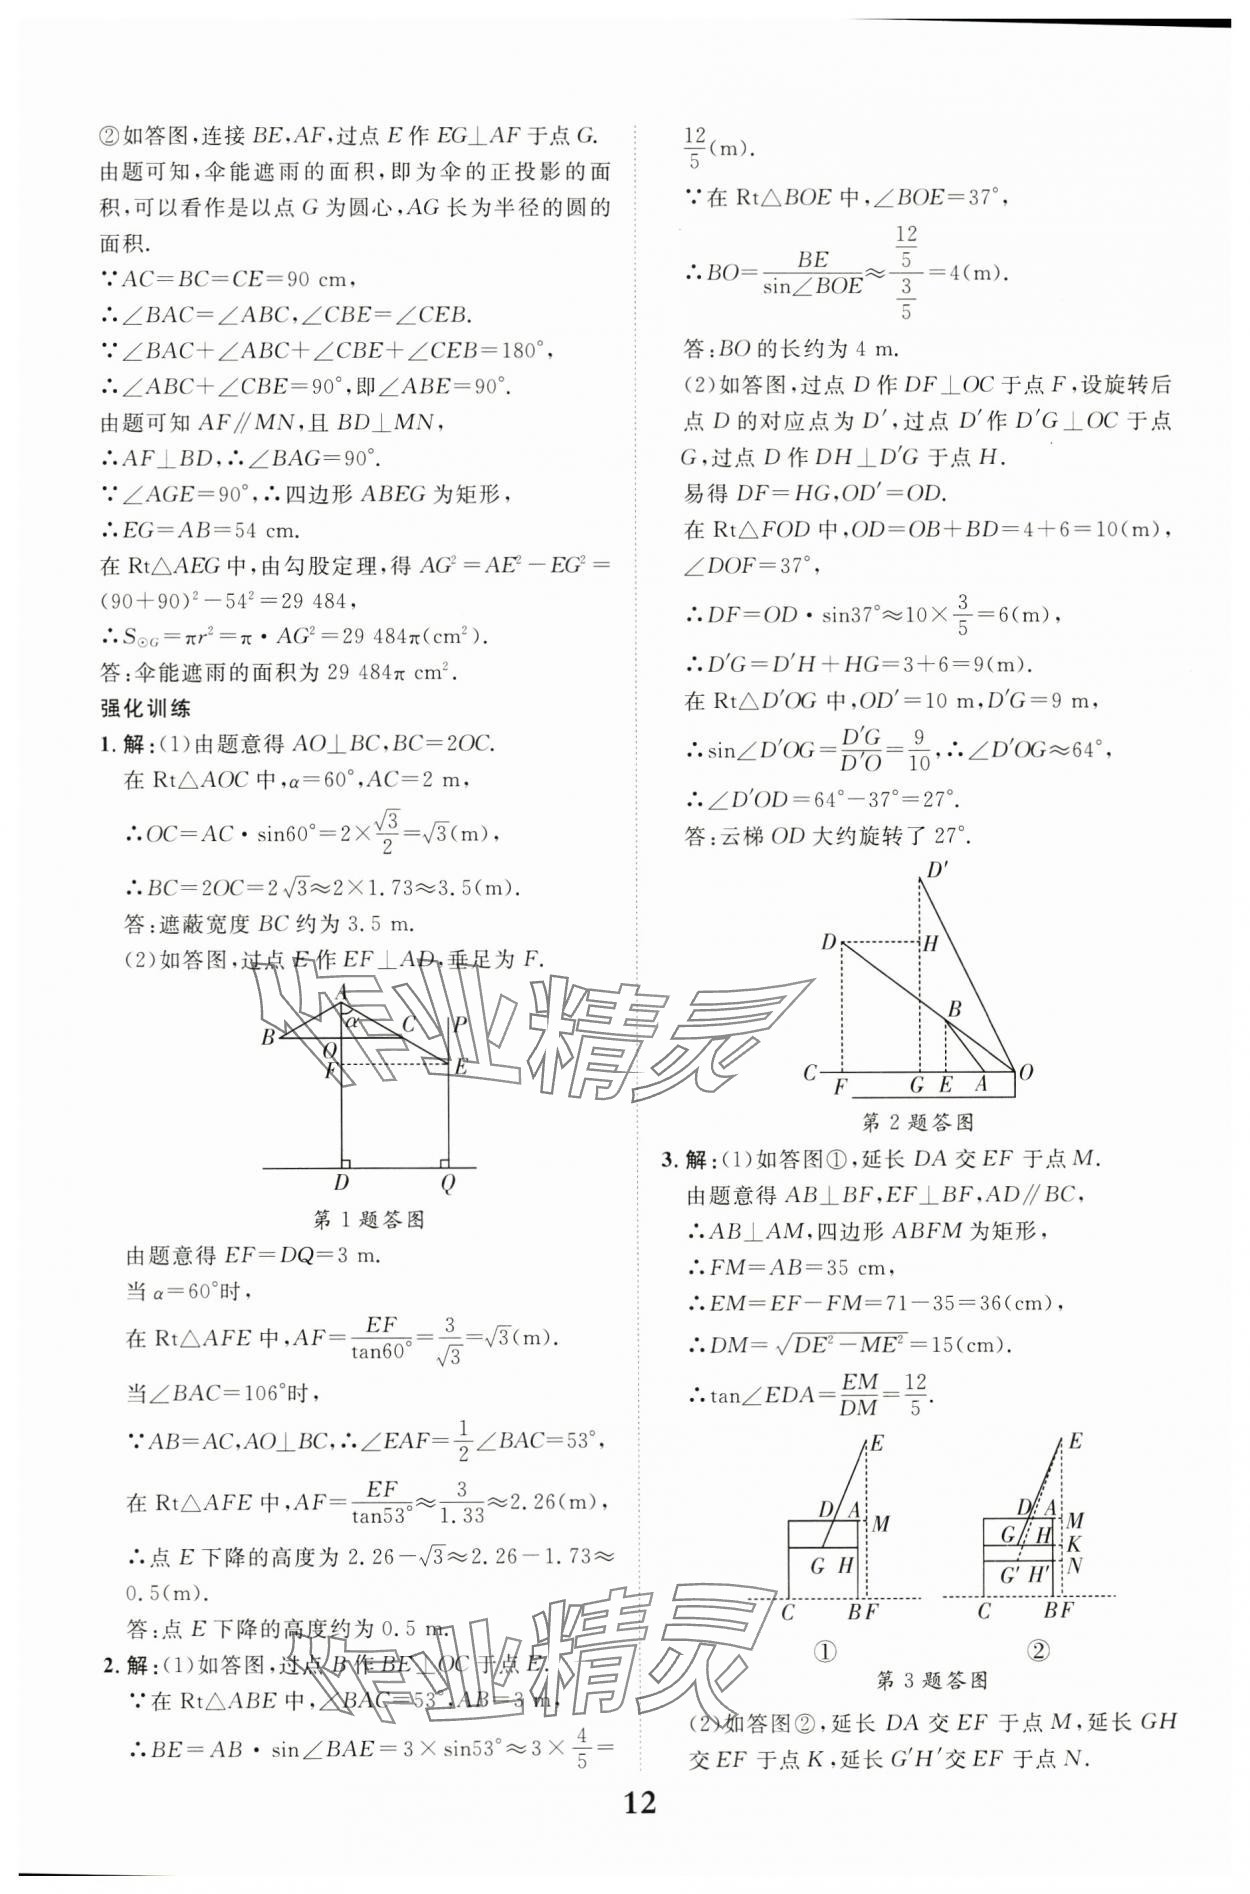 ②如答图,连接 BE,AF,过点 E 作 EG⊥AF 于点 G.
由题可知,伞能遮雨的面积,即为伞的正投影的面
积,可以看作是以点 G 为圆心,AG 长为半径的圆的
面积.
∵AC=BC=CE=90 cm,
∴∠BAC=∠ABC,∠CBE=∠CEB.
∵∠BAC+∠ABC+∠CBE+∠CEB=180°,
∴∠ABC+∠CBE=90°,即∠ABE=90°.
由题可知 AF∥MN,且 BD⊥MN,
∴AF⊥BD,∴∠BAG=90°.
∵∠AGE=90°,∴四边形 ABEG 为矩形,
∴EG=AB=54 cm.
在 Rt△AEG 中,由勾股定理,得 AG²=AE²-EG²=
(90+90)²-54²=29 484,
∴S⊙G=πr²=π·AG²=29 484π(cm²).
答:伞能遮雨的面积为 29 484π cm².
强化训练
1.解:(1)由题意得 AO⊥BC,BC=2OC.
在 Rt△AOC 中,α=60°,AC=2 m,
∴OC=AC·sin60°=2×√3/2=√3(m),
∴BC=2OC=2√3≈2×1.73≈3.5(m).
答:遮蔽宽度 BC 约为 3.5 m.
(2)如答图,过点 E 作 EF⊥AD,垂足为 F.
A
α
B
C
P
O
F
E
D
Q
第 1 题答图
由题意得 EF=DQ=3 m.
当 α=60°时,
在 Rt△AFE 中,AF=EF/tan60°=3/√3=√3(m).
当∠BAC=106°时,
∵AB=AC,AO⊥BC,∴∠EAF=1/2∠BAC=53°,
在 Rt△AFE 中,AF=EF/tan53°≈3/1.33≈2.26(m),
∴点 E 下降的高度为 2.26-√3≈2.26-1.73≈
0.5(m).
答:点 E 下降的高度约为 0.5 m.
2.解:(1)如答图,过点 B 作 BE⊥OC 于点 E.
∵在 Rt△ABE 中,∠BAC=53°,AB=3 m,
∴BE=AB·sin∠BAE=3×sin53°≈3×4/5=
12/5(m).
∵在 Rt△BOE 中,∠BOE=37°,
∴BO=BE/sin∠BOE≈(12/5)/(3/5)=4(m).
答:BO 的长约为 4 m.
(2)如答图,过点 D 作 DF⊥OC 于点 F,设旋转后
点 D 的对应点为 D′,过点 D′作 D′G⊥OC 于点
G,过点 D 作 DH⊥D′G 于点 H.
易得 DF=HG,OD′=OD.
在 Rt△FOD 中,OD=OB+BD=4+6=10(m),
∠DOF=37°,
∴DF=OD·sin37°≈10×3/5=6(m),
∴D′G=D′H+HG=3+6=9(m).
在 Rt△D′OG 中,OD′=10 m,D′G=9 m,
∴sin∠D′OG=D′G/D′O=9/10,∴∠D′OG≈64°,
∴∠D′OD=64°-37°=27°.
答:云梯 OD 大约旋转了 27°.
D′
D
H
B
C
F
G
E
A
O
第 2 题答图
3.解:(1)如答图①,延长 DA 交 EF 于点 M.
由题意得 AB⊥BF,EF⊥BF,AD∥BC,
∴AB⊥AM,四边形 ABFM 为矩形,
∴FM=AB=35 cm,
∴EM=EF-FM=71-35=36(cm),
∴DM=√(DE²-ME²)=15(cm).
∴tan∠EDA=EM/DM=12/5.
E
D A
M
G H
C
B F
①
E
D A
M
G H
K
G′ H′
N
C
B F
②
第 3 题答图
(2)如答图②,延长 DA 交 EF 于点 M,延长 GH
交 EF 于点 K,延长 G′H′交 EF 于点 N.
作业精灵
作业精灵
12